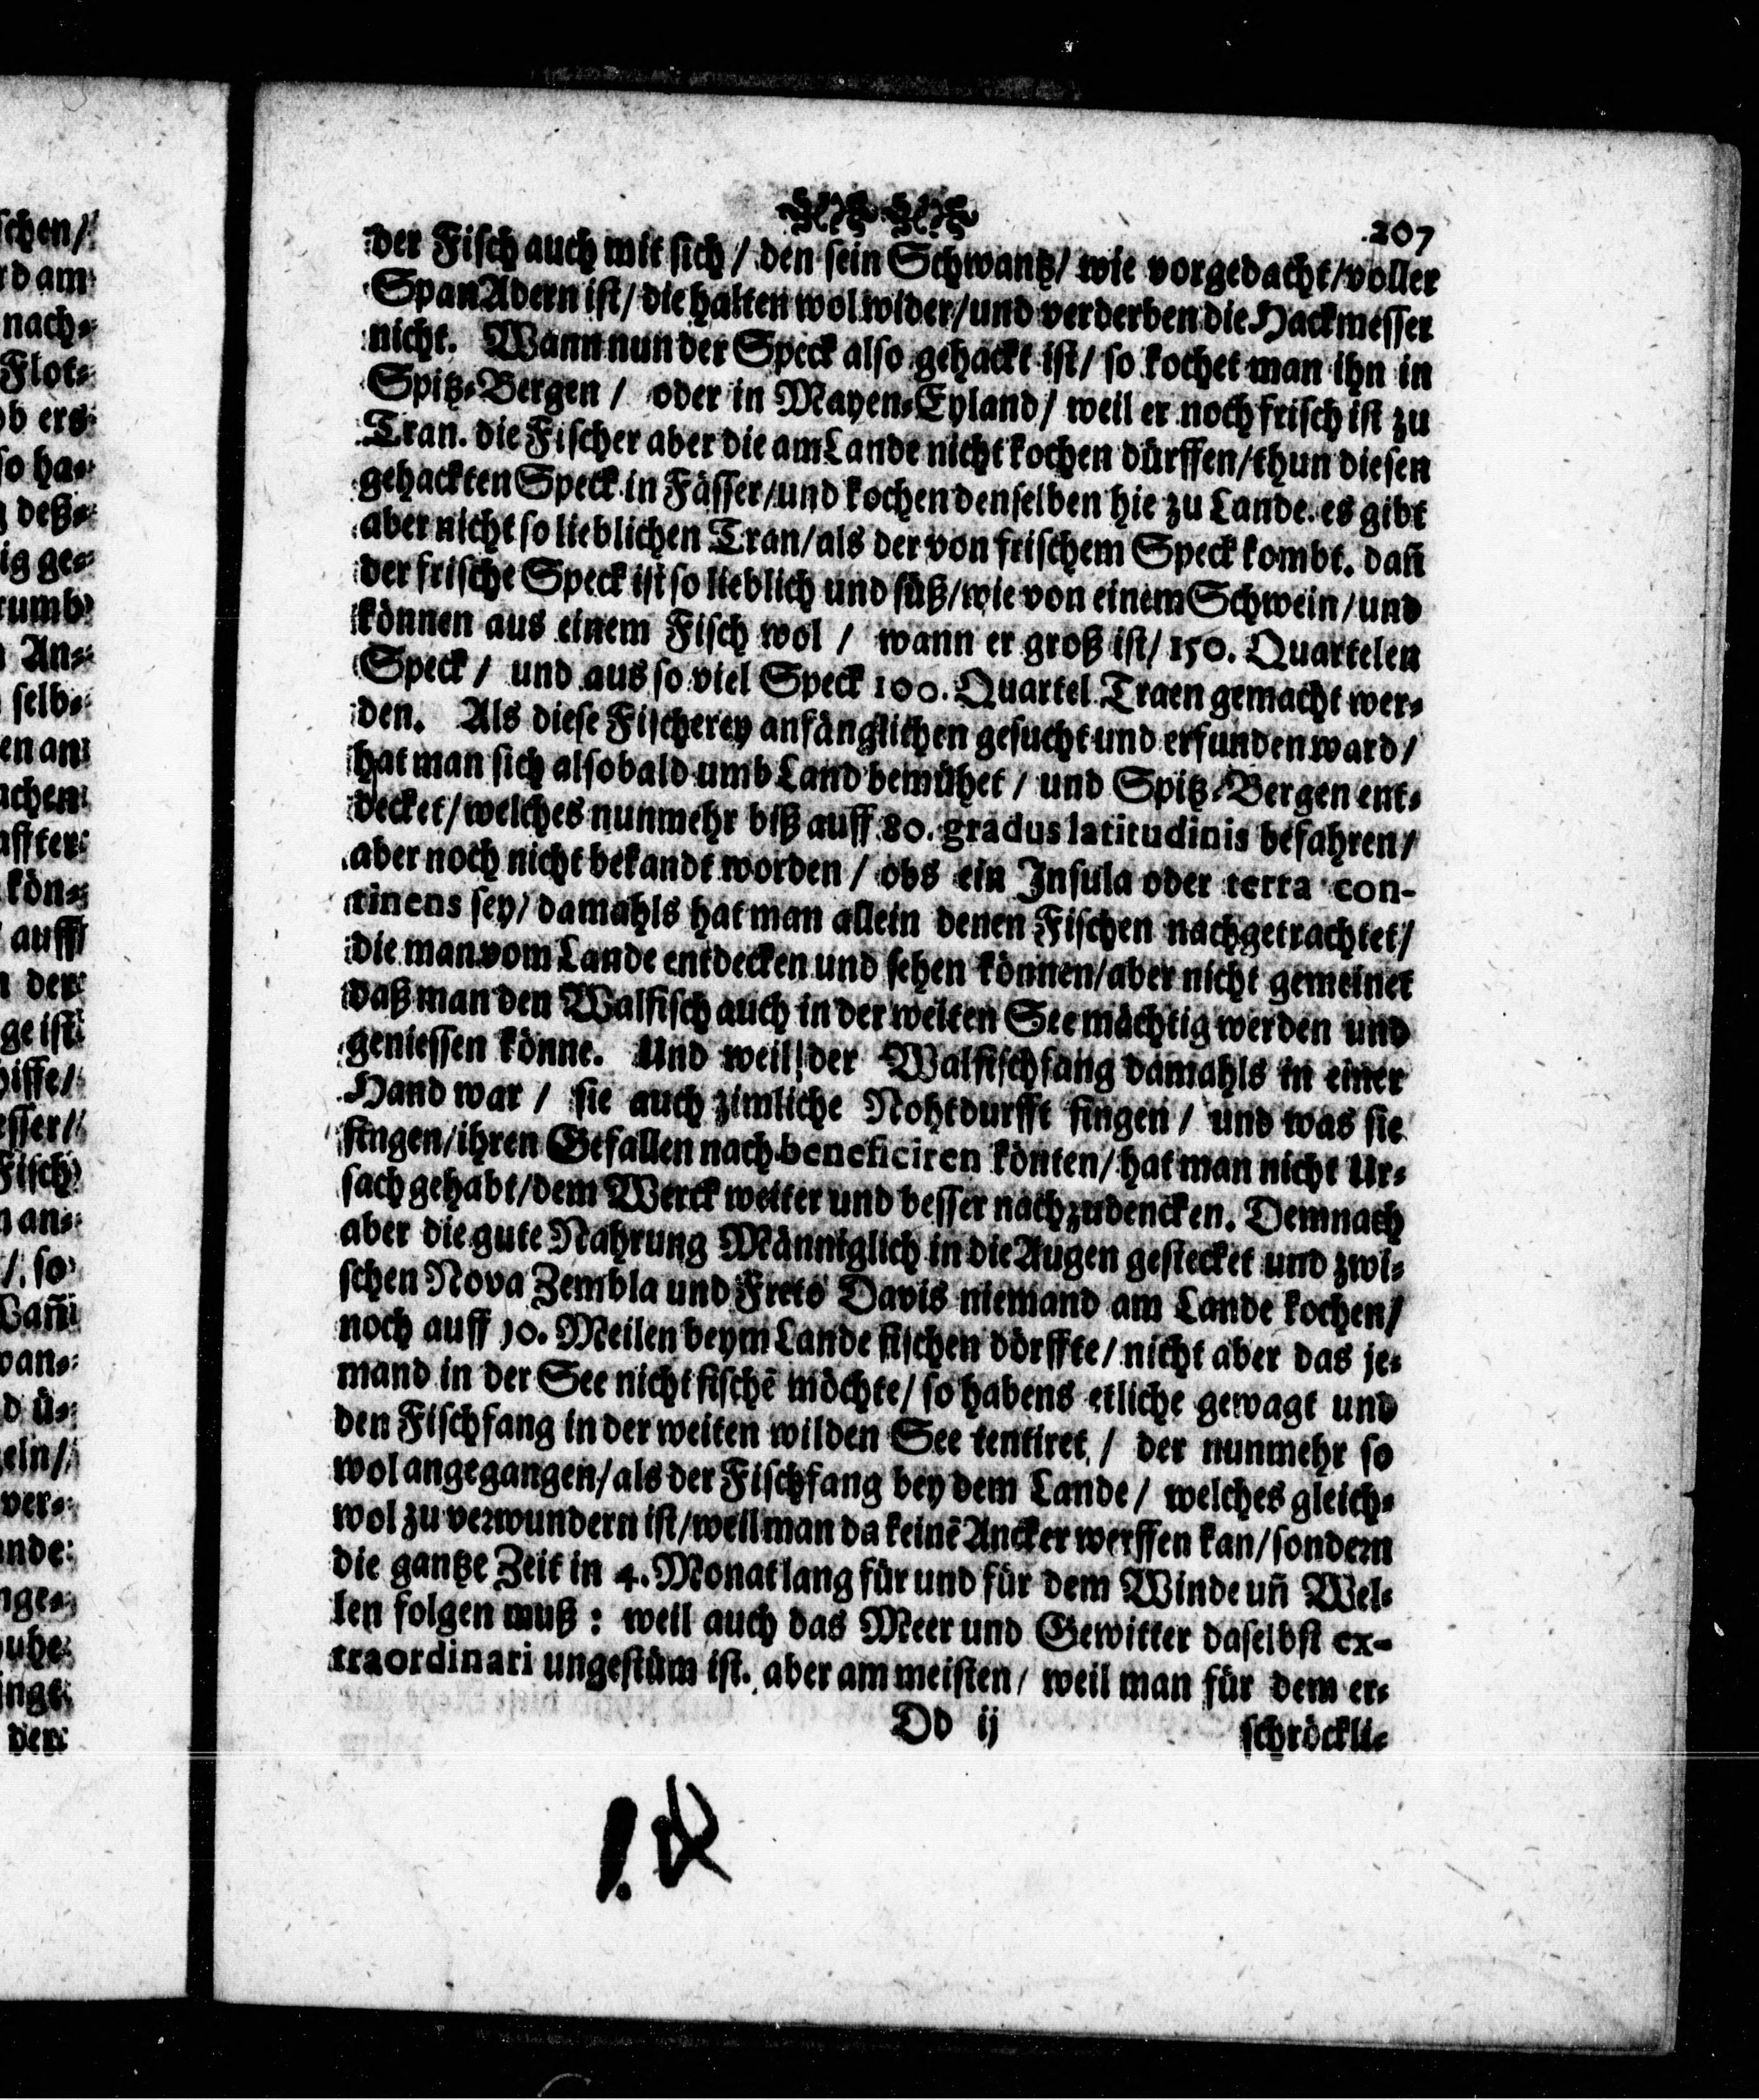 schen/
d am
nach⸗
Flot⸗
ob ers
so ha⸗
deß⸗
ig ge⸗
rumb
An⸗
selb⸗
en an
achen
affter
kön⸗
auff
der
ge ist
iffe/
esser/
Fisch
an⸗
/ so
Wañ
wan⸗
d ü⸗
eln/
ver⸗
nde
nge⸗
uhe
inge
der
207
der Fisch auch mit sich / den sein Schwantz/ wie vorgedacht/voller
SpanAdern ist/ die halten wol wider/und verderben die Hackmesser
nicht. Wann nun der Speck also gehackt ist/ so kochet man ihn in
Spitz⸗Bergen / oder in Mayen⸗Eyland/ weil er noch frisch ist zu
Tran. die Fischer aber die am Lande nicht kochen dürffen/thun diesen
gehackten Speck in Fässer/und kochen denselben hie zu Lande. es gibt
aber nicht so lieblichen Tran/als der von frischem Speck kombt. dañ
der frische Speck ist so lieblich und süß/wie von einem Schwein/und
können aus einem Fisch wol / wann er groß ist/ 150. Quartelen
Speck / und aus so viel Speck 100. Quartel Traen gemacht wer⸗
den. Als diese Fischerey anfänglichen gesucht und erfunden ward/
hat man sich alsobald umb Land bemühet / und Spitz⸗Bergen ent⸗
decket/welches nunmehr biß auff 80. gradus latitudinis befahren/
aber noch nicht bekandt worden / obs ein Insula oder terra con-
tinens sey/ damahls hat man allein denen Fischen nachgetrachtet/
die man vom Lande entdecken und sehen können/aber nicht gemeinet
daß man den Walfisch auch in der weiten See mächtig werden und
geniessen könne. Und weil der Walfischfang damahls in einer
Hand war / sie auch zimliche Nohtdurfft fingen / und was sie
fingen/ihren Gefallen nach beneficiren könten/hat man nicht Ur⸗
sach gehabt/dem Werck weiter und besser nachzudencken. Demnach
aber die gute Nahrung Männiglich in die Augen gestecket und zwi⸗
schen Nova Zembla und Freto Davis niemand am Lande kochen/
noch auff 10. Meilen beym Lande fischen dörffte/nicht aber das je⸗
mand in der See nicht fischē möchte/ so habens etliche gewagt und
den Fischfang in der weiten wilden See tentiret / der nunmehr so
wol angegangen/als der Fischfang bey dem Lande/ welches gleich⸗
wol zu verwundern ist/weil man da keinē Ancker werffen kan/sondern
die gantze Zeit in 4. Monat lang für und für dem Winde uñ Wel⸗
len folgen muß : weil auch das Meer und Gewitter daselbst ex-
traordinari ungestüm ist. aber am meisten/ weil man für dem er⸗
Dd ij schröckli⸗